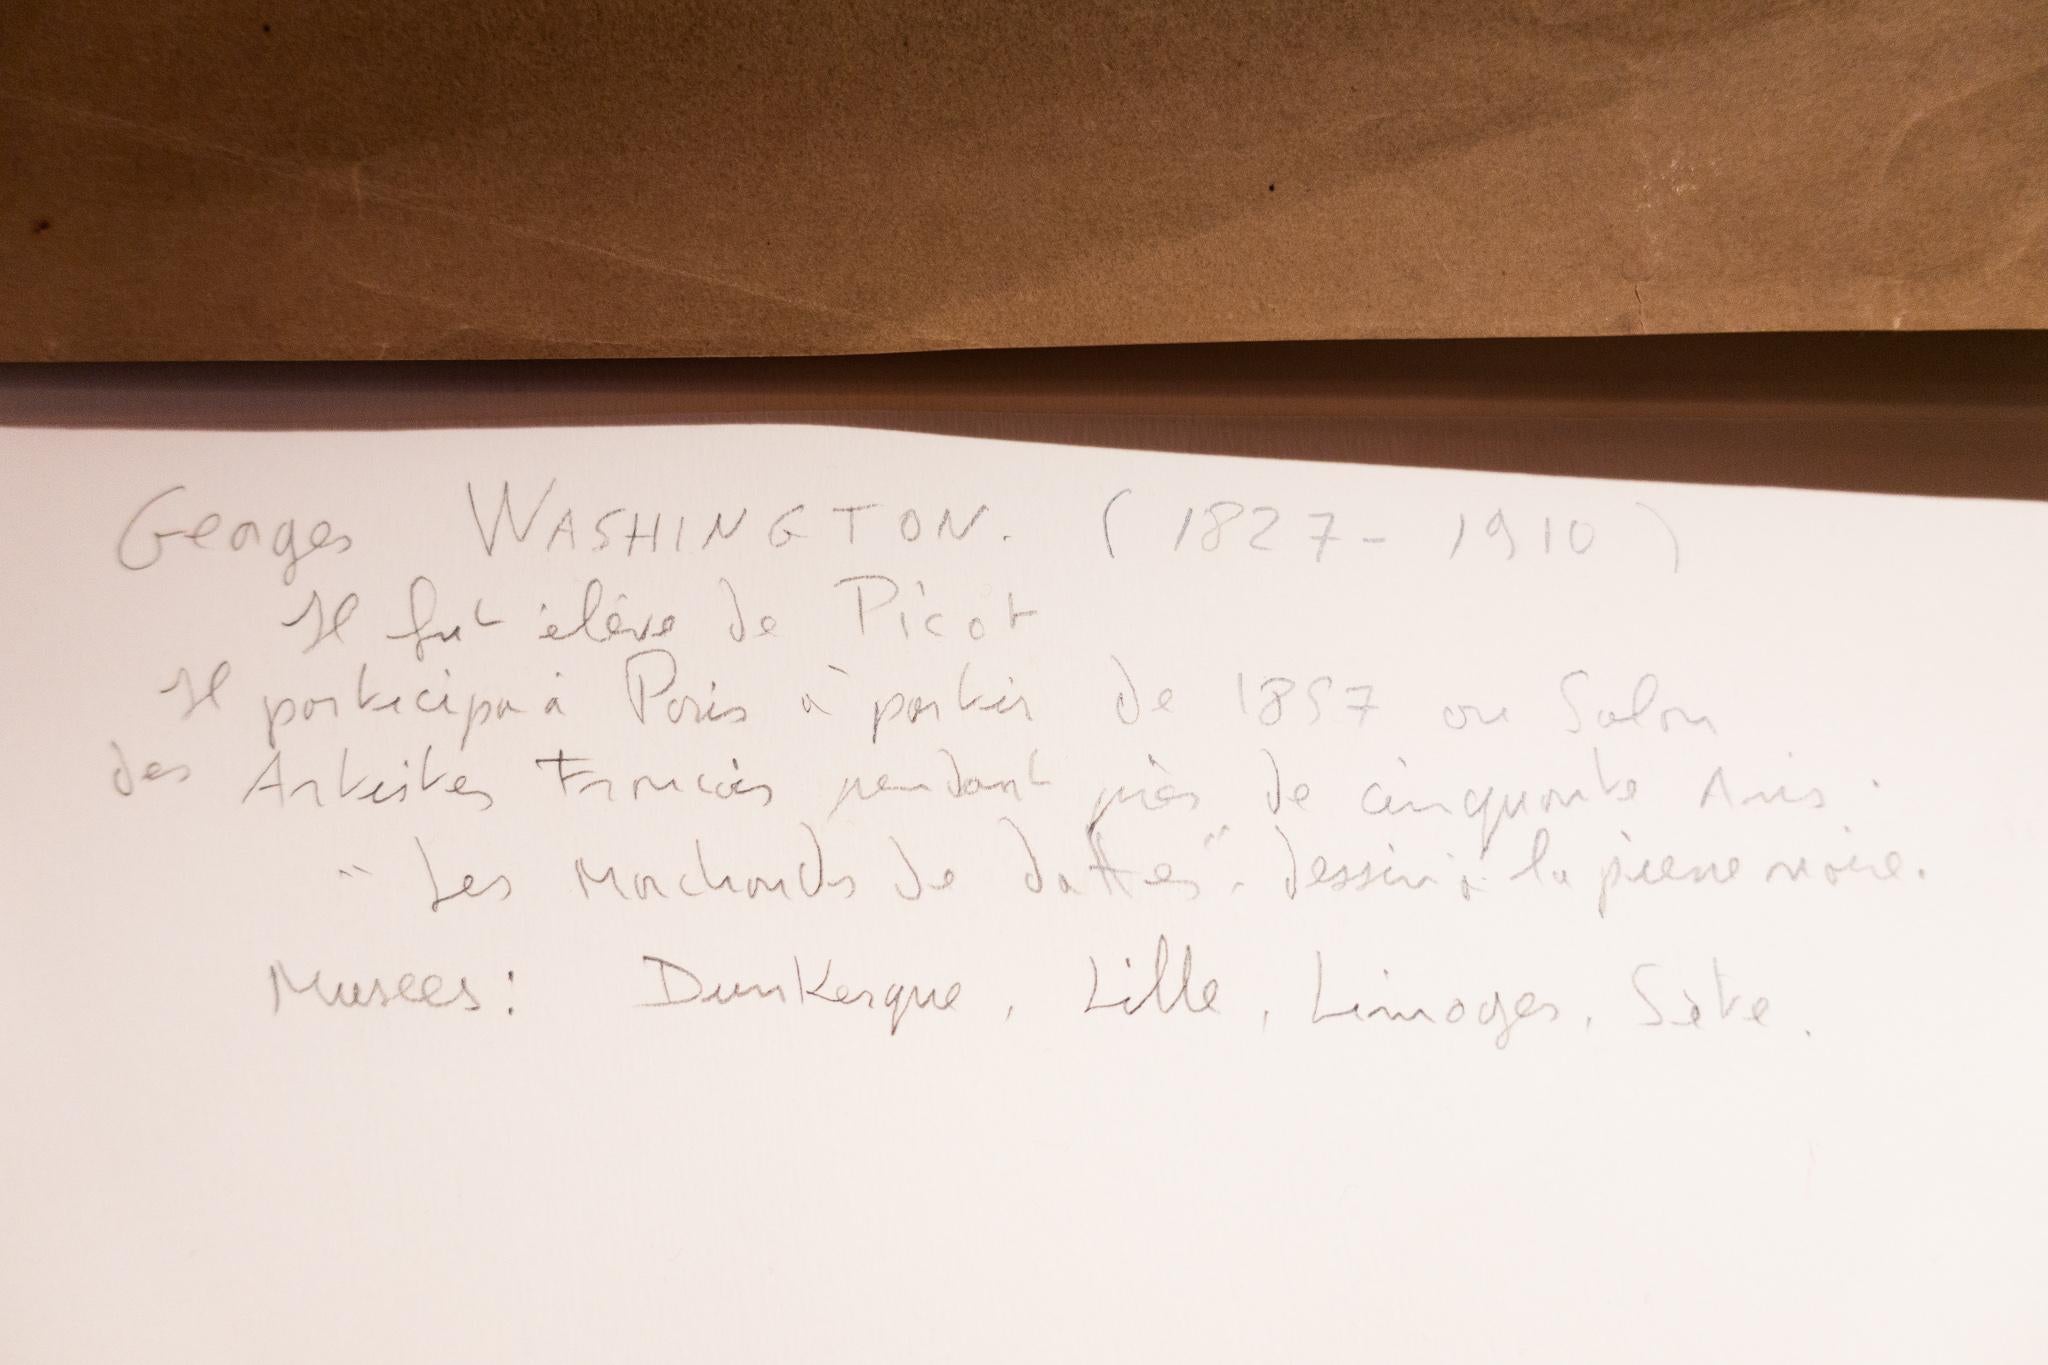 Georges WASHINGTON. (1827-1910)
Il fut élève de Picot
Il participa à Paris à partir de 1857 au Salon
des Artistes Francais pendant près de cinquante Ans.
"Les Marchands de dattes". dessin à la pierre noire.
Musées: Dunkerque, Lille, Limoges, Sète.